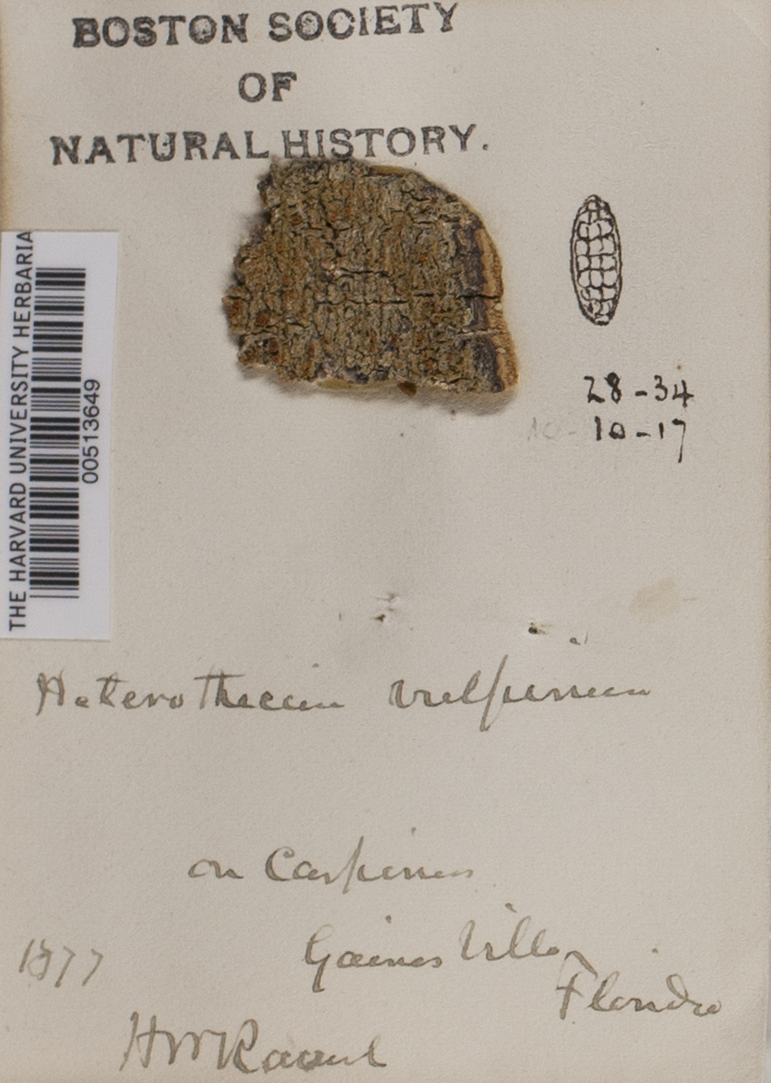 BOSTON SOCIETY
OF
NATURAL HISTORY.
THE HARVARD UNIVERSITY HERBARIA
00513649
28-34
10-17
Heterothecium vulpinum
on Carpinus
Gainesville
Florida
1877
HWRavenel